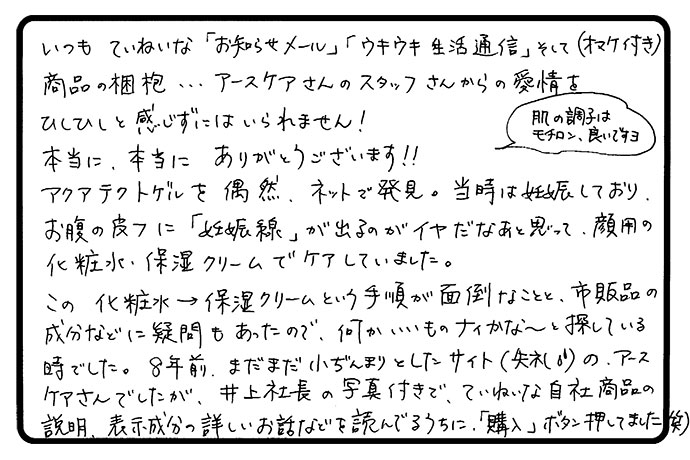 いつも ていねいな「お知らせメール」「ウキウキ生活通信」そして(オマケ付き)
商品の梱枹… アースケアさんのスタッフさんからの愛情を
ひしひしと感じずにはいられません!
肌の調子は
モチロン、良いですヨ
本当に、本当に ありがとうございます!!
アクアテクトゲルを 偶然、ネットで発見。当時は妊娠しており、
お腹の皮フに「妊娠線」が出るのがイヤだなあと思って、顔用の
化粧水・保湿クリームでケアしていました。
この 化粧水→保湿クリームという手順が面倒なことと、市販品の
成分などに疑問もあったので、何かいいものナイかな〜と探している
時でした。8年前、まだまだ小ぢんまりとしたサイト(失礼!!)の、アース
ケアさんでしたが、井上社長の写真付きで、ていねいな自社商品の
説明、表示成分の詳しいお話などを読んでるうちに、「購入」ボタン押してました(笑)